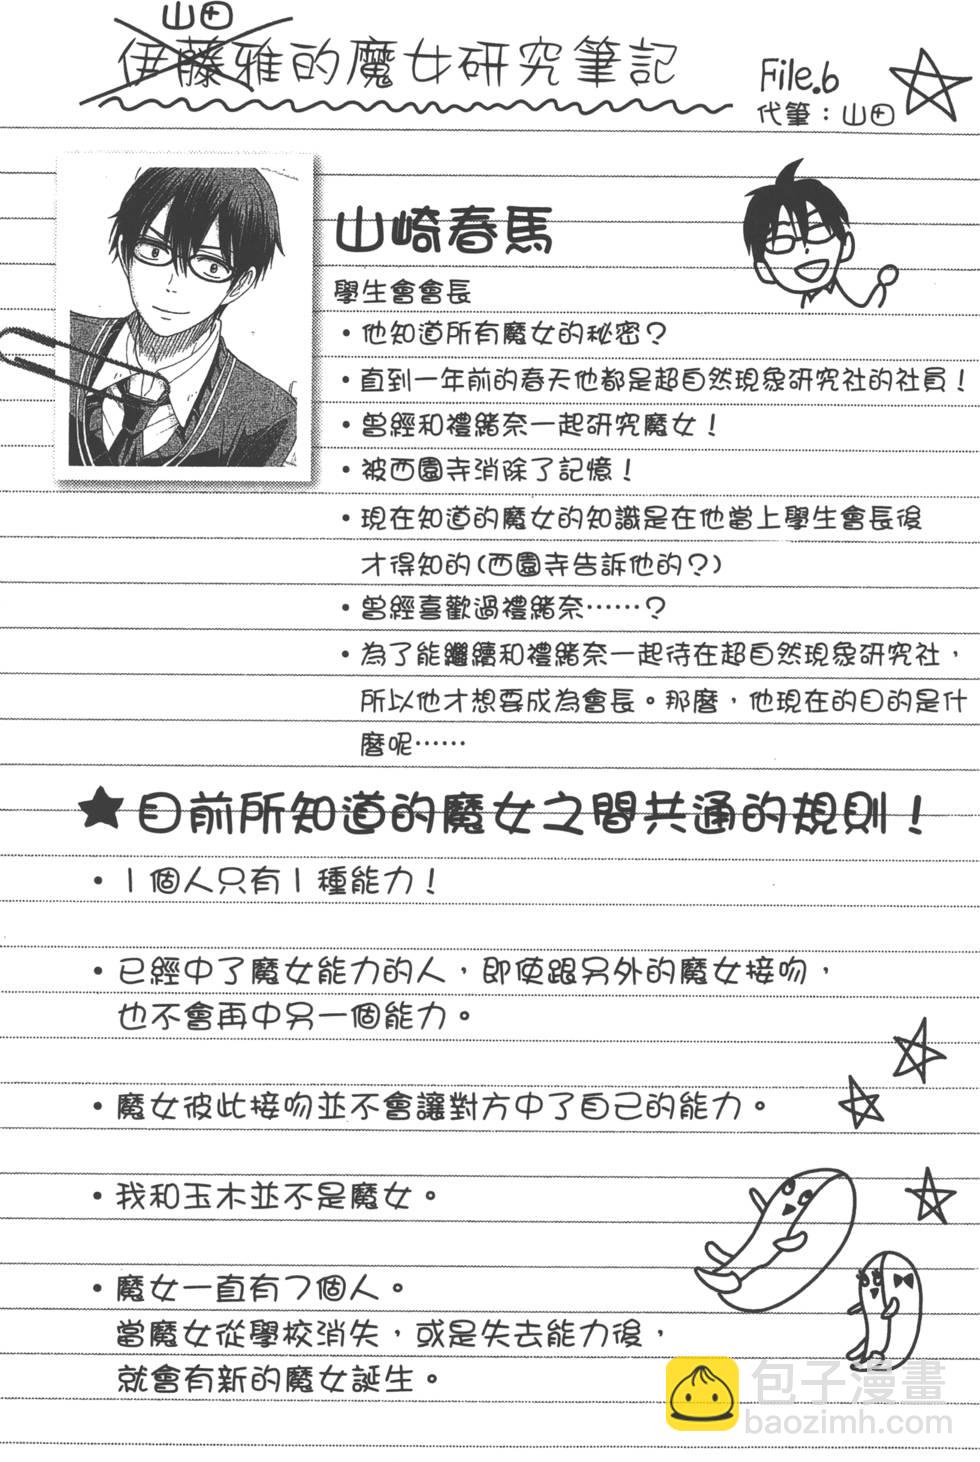 山田
伊藤雅的魔女研究筆記
File.6
代筆：山田
山崎春馬
學生會會長
・他知道所有魔女的秘密？
・直到一年前的春天他都是超自然現象研究社的社員！
・曾經和禮緒奈一起研究魔女！
・被西園寺消除了記憶！
・現在知道的魔女的知識是在他當上學生會長後
才得知的(西園寺告訴他的？)
・曾經喜歡過禮緒奈……？
・為了能繼續和禮緒奈一起待在超自然現象研究社，
所以他才想要成為會長。那麼，他現在的目的是什
麼呢……
★目前所知道的魔女之間共通的規則！
・1個人只有1種能力！
・已經中了魔女能力的人，即使跟另外的魔女接吻，
也不會再中另一個能力。
・魔女彼此接吻並不會讓對方中了自己的能力。
・我和玉木並不是魔女。
・魔女一直有7個人。
當魔女從學校消失，或是失去能力後，
就會有新的魔女誕生。
包子漫畫
baozimh.com